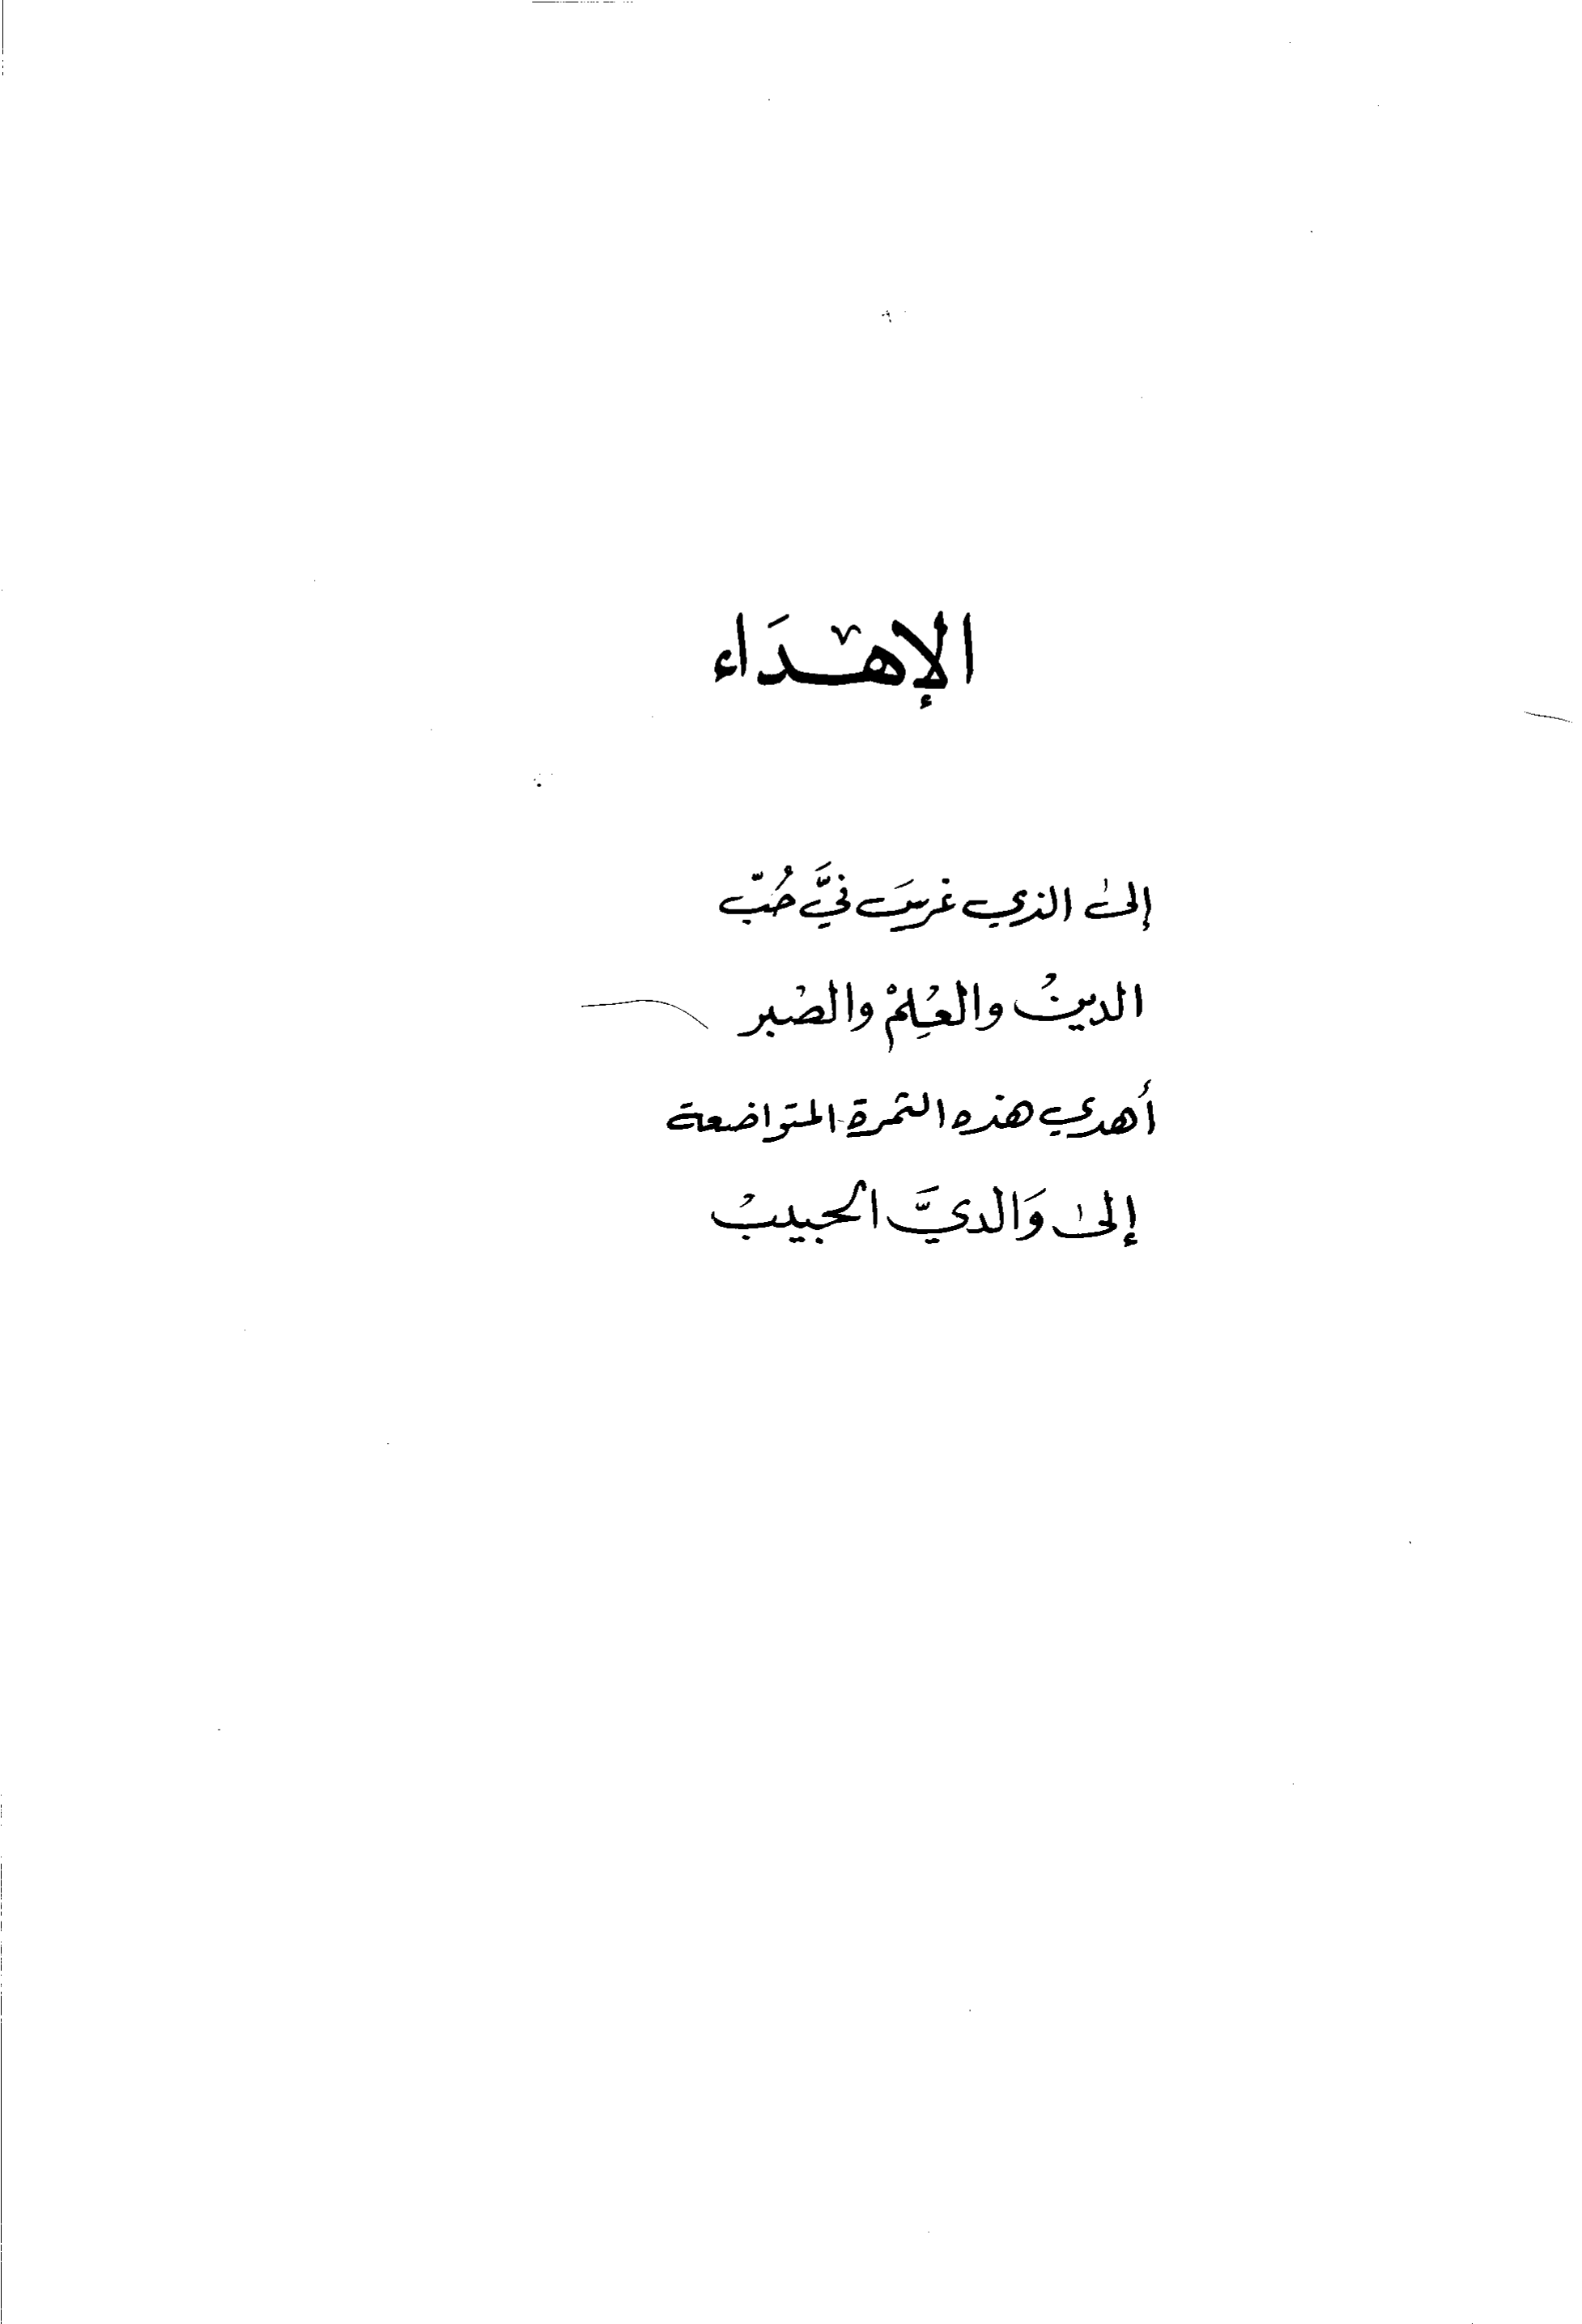 الإهدَاء
إلى الذي غرسَ فيَّ حُبّ
الدين والعِلمْ والصبر
أهدي هذه الثمرة المتواضعة
إلى وَالديَّ الحبيب